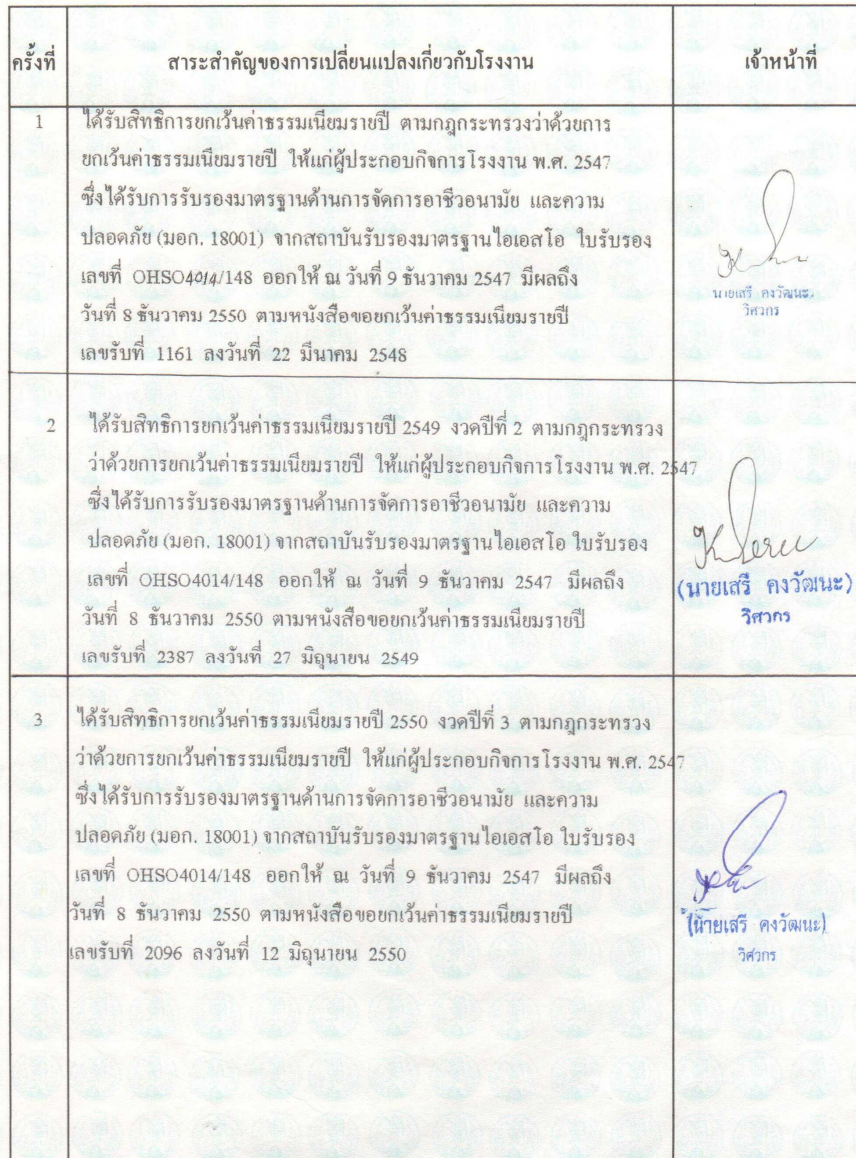 ครั้งที่ สาระสำคัญของการเปลี่ยนแปลงเกี่ยวกับโรงงาน เจ้าหน้าที่
1 ได้รับสิทธิการยกเว้นค่าธรรมเนียมรายปี ตามกฎกระทรวงว่าด้วยการ
ยกเว้นค่าธรรมเนียมรายปี ให้แก่ผู้ประกอบกิจการโรงงาน พ.ศ. 2547
ซึ่งได้รับการรับรองมาตรฐานด้านการจัดการอาชีวอนามัย และความ
ปลอดภัย (มอก. 18001) จากสถาบันรับรองมาตรฐานไอเอสโอ ใบรับรอง
เลขที่ OHSO4014/148 ออกให้ ณ วันที่ 9 ธันวาคม 2547 มีผลถึง
วันที่ 8 ธันวาคม 2550 ตามหนังสือขอยกเว้นค่าธรรมเนียมรายปี
เลขรับที่ 1161 ลงวันที่ 22 มีนาคม 2548
นายเสรี คงวัฒนะ
วิศวกร
2 ได้รับสิทธิการยกเว้นค่าธรรมเนียมรายปี 2549 งวดปีที่ 2 ตามกฎกระทรวง
ว่าด้วยการยกเว้นค่าธรรมเนียมรายปี ให้แก่ผู้ประกอบกิจการโรงงาน พ.ศ. 2547
ซึ่งได้รับการรับรองมาตรฐานด้านการจัดการอาชีวอนามัย และความ
ปลอดภัย (มอก. 18001) จากสถาบันรับรองมาตรฐานไอเอสโอ ใบรับรอง
เลขที่ OHSO4014/148 ออกให้ ณ วันที่ 9 ธันวาคม 2547 มีผลถึง
วันที่ 8 ธันวาคม 2550 ตามหนังสือขอยกเว้นค่าธรรมเนียมรายปี
เลขรับที่ 2387 ลงวันที่ 27 มิถุนายน 2549
(นายเสรี คงวัฒนะ)
วิศวกร
3 ได้รับสิทธิการยกเว้นค่าธรรมเนียมรายปี 2550 งวดปีที่ 3 ตามกฎกระทรวง
ว่าด้วยการยกเว้นค่าธรรมเนียมรายปี ให้แก่ผู้ประกอบกิจการโรงงาน พ.ศ. 2547
ซึ่งได้รับการรับรองมาตรฐานด้านการจัดการอาชีวอนามัย และความ
ปลอดภัย (มอก. 18001) จากสถาบันรับรองมาตรฐานไอเอสโอ ใบรับรอง
เลขที่ OHSO4014/148 ออกให้ ณ วันที่ 9 ธันวาคม 2547 มีผลถึง
วันที่ 8 ธันวาคม 2550 ตามหนังสือขอยกเว้นค่าธรรมเนียมรายปี
เลขรับที่ 2096 ลงวันที่ 12 มิถุนายน 2550
(นายเสรี คงวัฒนะ)
วิศวกร